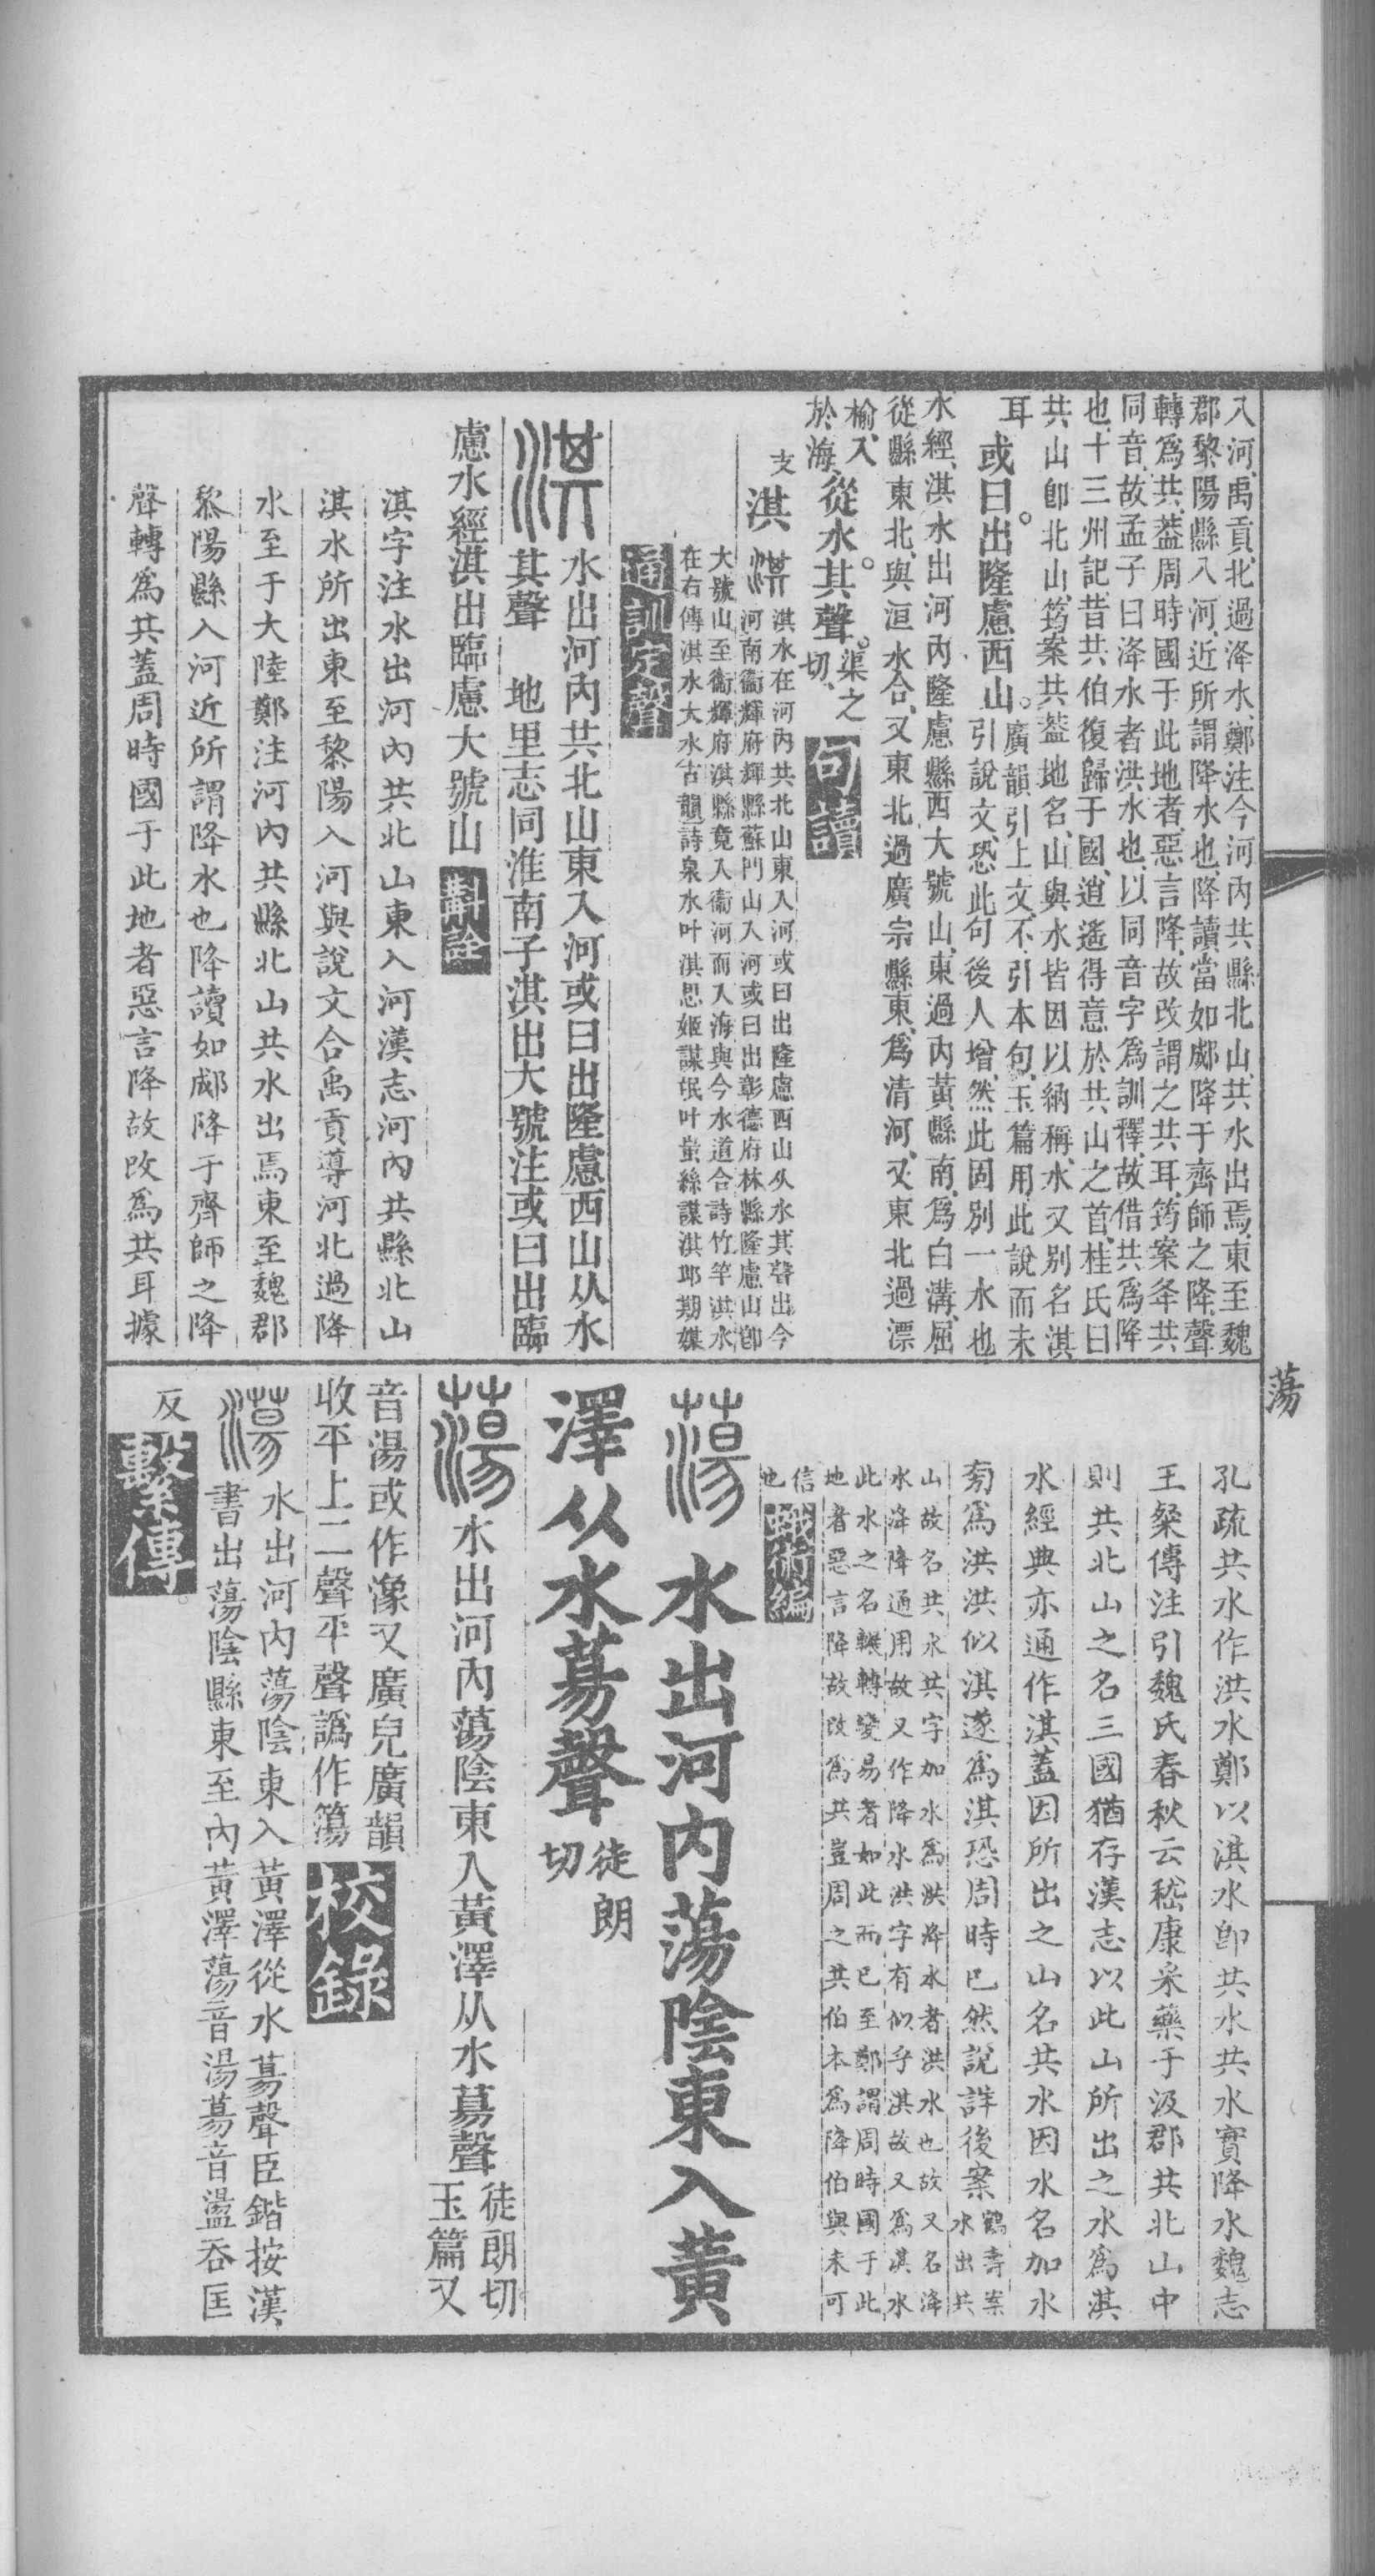 入河、禹貢、北過洚水、鄭注、今河內共縣北山、共水出焉、東至魏
郡黎陽縣入河、近所謂降水也、降讀當如郕降于齊師之降、聲
轉為共、葢周時國于此地者、惡言降、故改謂之共耳、筠案夅共
同音、故孟子曰洚水者洪水也、以同音字為訓釋、故借共為降
也、十三州記、昔共伯復歸于國、逍遙得意於共山之首、桂氏曰
共山卽北山、筠案共葢地名、山與水皆因以納稱、水又別名淇
耳。或曰出隆慮西山。廣韻引上文、不引本句、玉篇用此說而未
引說文、恐此句後人增、然此固別一水也
水經、淇水出河內隆慮縣西大號山、東過內黃縣南、為白溝、屈
從縣東北、與洹水合、又東北過廣宗縣東、為清河、又東北過漂
榆、入
於海、從水。其聲。渠之
切、
句讀
支
淇
淇水在河內共北山東入河或曰出隆慮西山从水其聲出今
河南衞輝府輝縣蘇門山入河或曰出彰德府林縣隆慮山卽
大號山至衞輝府淇縣竟入衞河而入海與今水道合詩竹竿淇水
在右傳淇水大水古韻詩泉水叶淇思姬謀氓叶蚩絲謀淇邱期媒
通訓定聲
水出河內共北山東入河或曰出隆慮西山从水
其聲　地里志同淮南子淇出大號注或曰出臨
慮水經淇出臨慮大號山
斠詮
淇字注水出河內共北山東入河漢志河內共縣北山
淇水所出東至黎陽入河與說文合禹貢導河北過降
水至于大陸鄭注河內共縣北山共水出焉東至魏郡
黎陽縣入河近所謂降水也降讀如郕降于齊師之降
聲轉為共蓋周時國于此地者惡言降故改為共耳據
蕩
孔疏共水作洪水鄭以淇水卽共水共水實降水魏志
王粲傳注引魏氏春秋云嵇康采藥于汲郡共北山中
則共北山之名三國猶存漢志以此山所出之水為淇
水經典亦通作淇蓋因所出之山名共水因水名加水
旁為洪洪似淇遂為淇恐周時已然說詳後案鶴壽案
水出共
山故名共水共字加水為洪洚水者洪水也故又名洚
水洚降通用故又作降水洪字有似乎淇故又為淇水
此水之名輾轉變易者如此而已至鄭謂周時國于此
地者惡言降故改為共豈周之共伯本為降伯與未可
信
也
蛾術編
水出河內蕩陰東入黃
澤从水蕩聲徒朗
切
水出河內蕩陰東入黃澤从水蕩聲徒朗切
玉篇又
音湯或作潒又廣皃廣韻
收平上二聲平聲譌作簜
校錄
水出河內蕩陰東入黃澤從水蕩聲臣鍇按漢
書出蕩陰縣東至內黃澤蕩音湯蕩音盪吞匡
反
繫傳